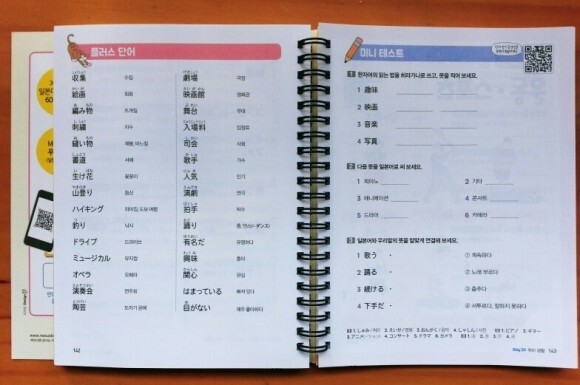 플러스 단어
収集 수집
絵画 회화
編み物 뜨개질
刺繍 자수
縫い物 재봉, 바느질
書道 서예
生け花 꽃꽂이
山登り 등산
ハイキング 하이킹, 도보 여행
釣り 낚시
ドライブ 드라이브
ミュージカル 뮤지컬
オペラ 오페라
演奏会 연주회
陶芸 도자기 공예
劇場 극장
映画館 영화관
舞台 무대
入場料 입장료
司会 사회
歌手 가수
人気 인기
演劇 연극
拍手 박수
踊り 춤, 댄스(=ダンス)
有名だ 유명하다
興味 흥미
関心 관심
はまっている 빠져 있다
目がない 매우 좋아하다
142
미니 테스트
1 한자어의 읽는 법을 히라가나로 쓰고, 뜻을 적어 보세요.
1 趣味
2 映画
3 音楽
4 写真
2 다음 뜻을 일본어로 써 보세요.
1 피아노
2 기타
3 애니메이션
4 콘서트
5 드라마
6 카메라
3 일본어와 우리말의 뜻을 알맞게 연결해 보세요.
1 歌う · · ① 계속하다
2 踊る · · ② 노래 부르다
3 続ける · · ③ 춤추다
4 下手だ · · ④ 서투르다, 잘하지 못하다
1 1. しゅみ/취미 2. えいが/영화 3. おんがく/음악 4. しゃしん/사진 2 1. ピアノ 2. ギター
3. アニメーション 4. コンサート 5. ドラマ 6. カメラ
143